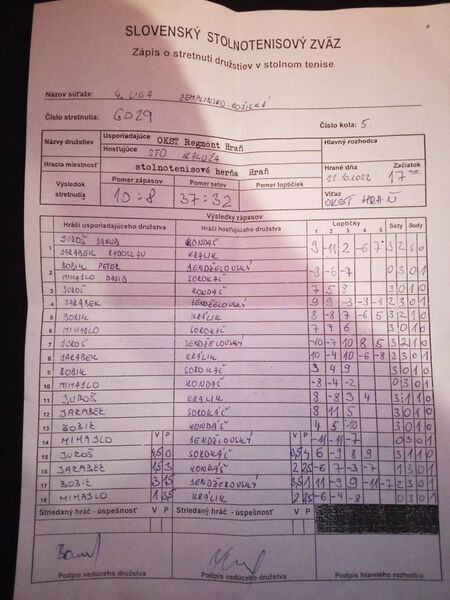 SLOVENSKÝ STOLNOTENISOVÝ ZVÄZ
Zápis o stretnutí družstiev v stolnom tenise
Názov súťaže: 4. LIGA ZEMPLÍNSKO-KOŠICKÁ
Číslo stretnutia: GD29
Číslo kola: 5.
Názvy družstiev Usporiadajúce OKST Regmont Hraň Hlavný rozhodca
Hosťujúce STO KALUŽA
Hracia miestnosť stolnotenisová herňa Hraň Hrané dňa 22.10.2022 Začiatok 17 00
Výsledok stretnutia Pomer zápasov 10:8 Pomer setov 37:32 Pomer loptičiek Víťaz OKST HRAŇ
Výsledky zápasov
Hráči usporiadajúceho družstva Hráči hosťujúceho družstva Loptičky 1 2 3 4 5 Sety Body
1 JUROŠ JAKUB KONDÁČ 9 -11 2 -6 7 3 2 1 0
JARABEK RADOSLAV KRÁLIK
2 BOBIK PETER JENDŽELOVSKÝ -8 -6 -7 0 3 0 1
MIHAJLO DAVID SOROKÁČ
3 JUROŠ KONDÁČ 7 5 8 3 0 1 0
4 JARABEK JENDŽELOVSKÝ 9 9 -3 -3 2 3 0 1
5 BOBIK KRÁLIK 8 -8 7 -6 5 3 2 1 0
6 MIHAJLO SOROKÁČ 7 7 6 3 0 1 0
7 JUROŠ JENDŽELOVSKÝ -10 -7 10 8 5 3 2 1 0
8 JARABEK KRÁLIK 10 -4 10 -6 -8 2 3 0 1
9 BOBIK SOROKÁČ 3 4 9 3 0 1 0
10 MIHAJLO KONDÁČ -8 -4 -2 0 3 0 1
11 JUROŠ KRÁLIK 8 -8 3 4 3 1 1 0
12 JARABEK SOROKÁČ 8 11 5 3 0 1 0
13 BOBIK KONDÁČ 4 5 10 3 0 1 0
14 MIHAJLO V P JENDŽELOVSKÝ V P -11 -11 -7 0 3 0 1
15 JUROŠ SOROKÁČ 6 -9 8 9 3 1 1 0
16 JARABEK KONDÁČ -6 7 -3 -7 1 3 0 1
17 BOBIK JENDŽELOVSKÝ -11 9 9 -11 -7 2 3 0 1
18 MIHAJLO KRÁLIK -6 -4 -8 0 3 0 1
Striedaný hráč - úspešnosť V P Striedaný hráč - úspešnosť V P
Podpis vedúceho družstva Podpis vedúceho družstva Podpis hlavného rozhodcu